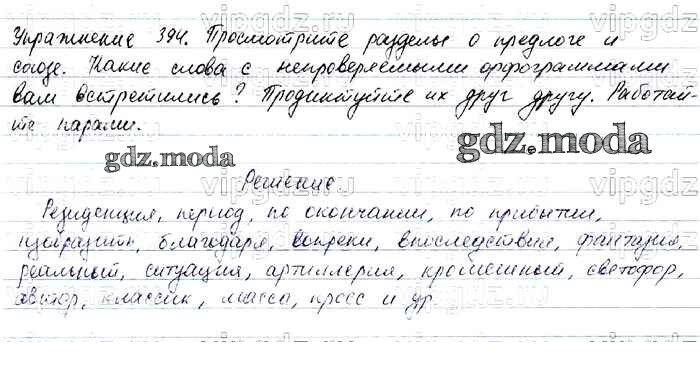 Упражнение 394. Просмотрите разделы о предлоге и
союзе. Какие слова с непроверяемыми орфограммами
вам встретились? Продиктуйте их друг другу. Работай-
те парами.
gdz.moda
gdz.moda
Решение
Резиденция, период, по окончании, по прибытии,
изобразить, благодаря, вопреки, впоследствии, фантазия,
реальный, ситуация, артиллерия, крошечный, светофор,
автор, классик, масса, пресс и др.